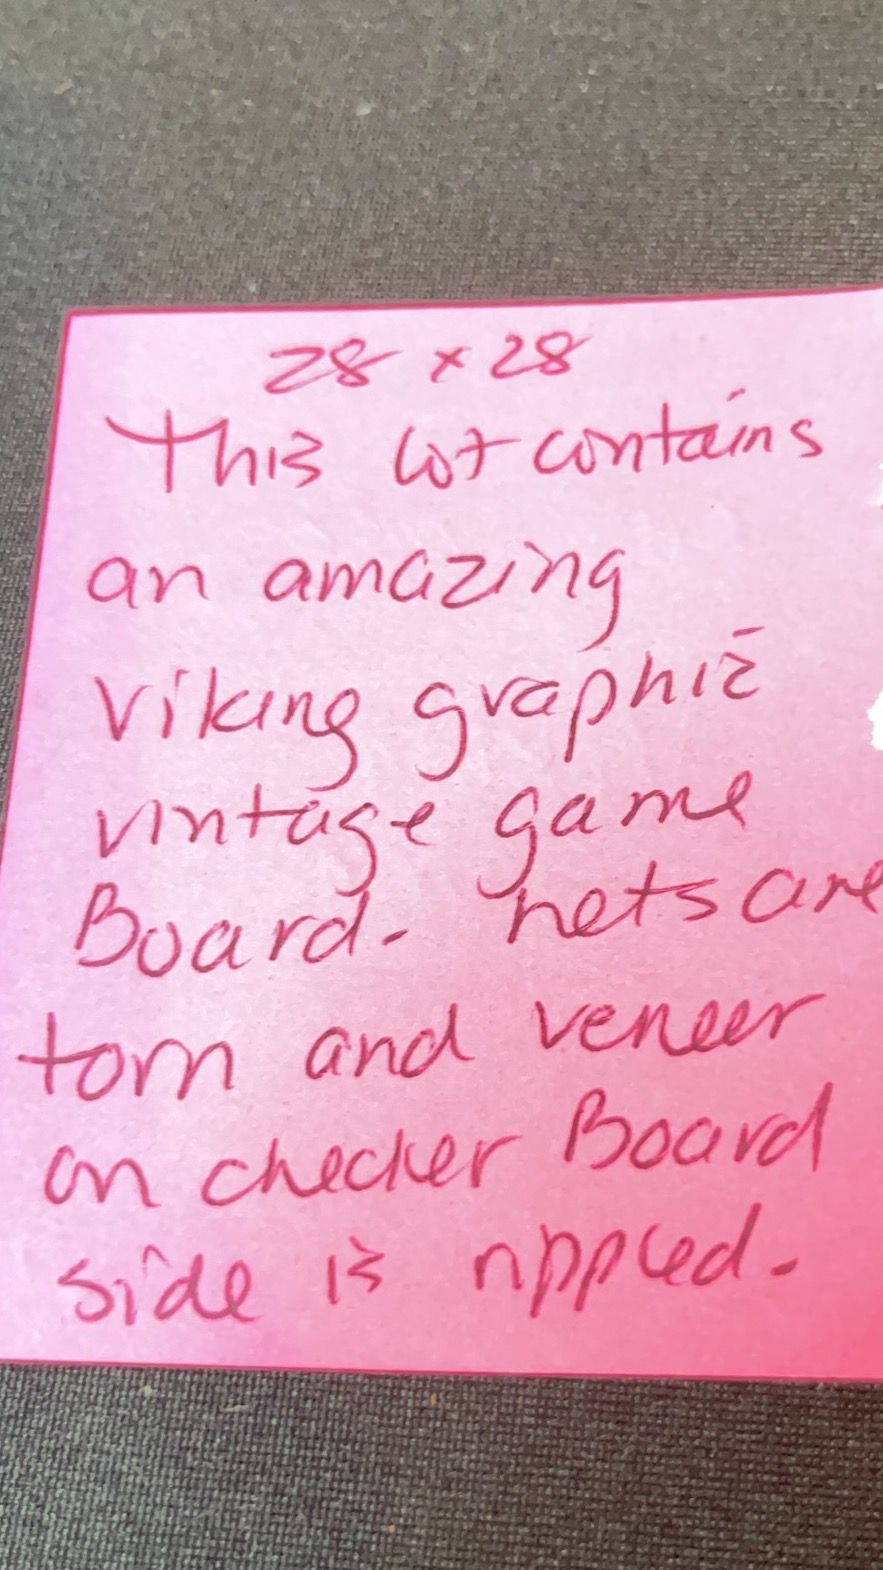 28 x 28
This lot contains
an amazing
Viking graphic
vintage game
Board. nets are
torn and veneer
on checker Board
side is rippled.